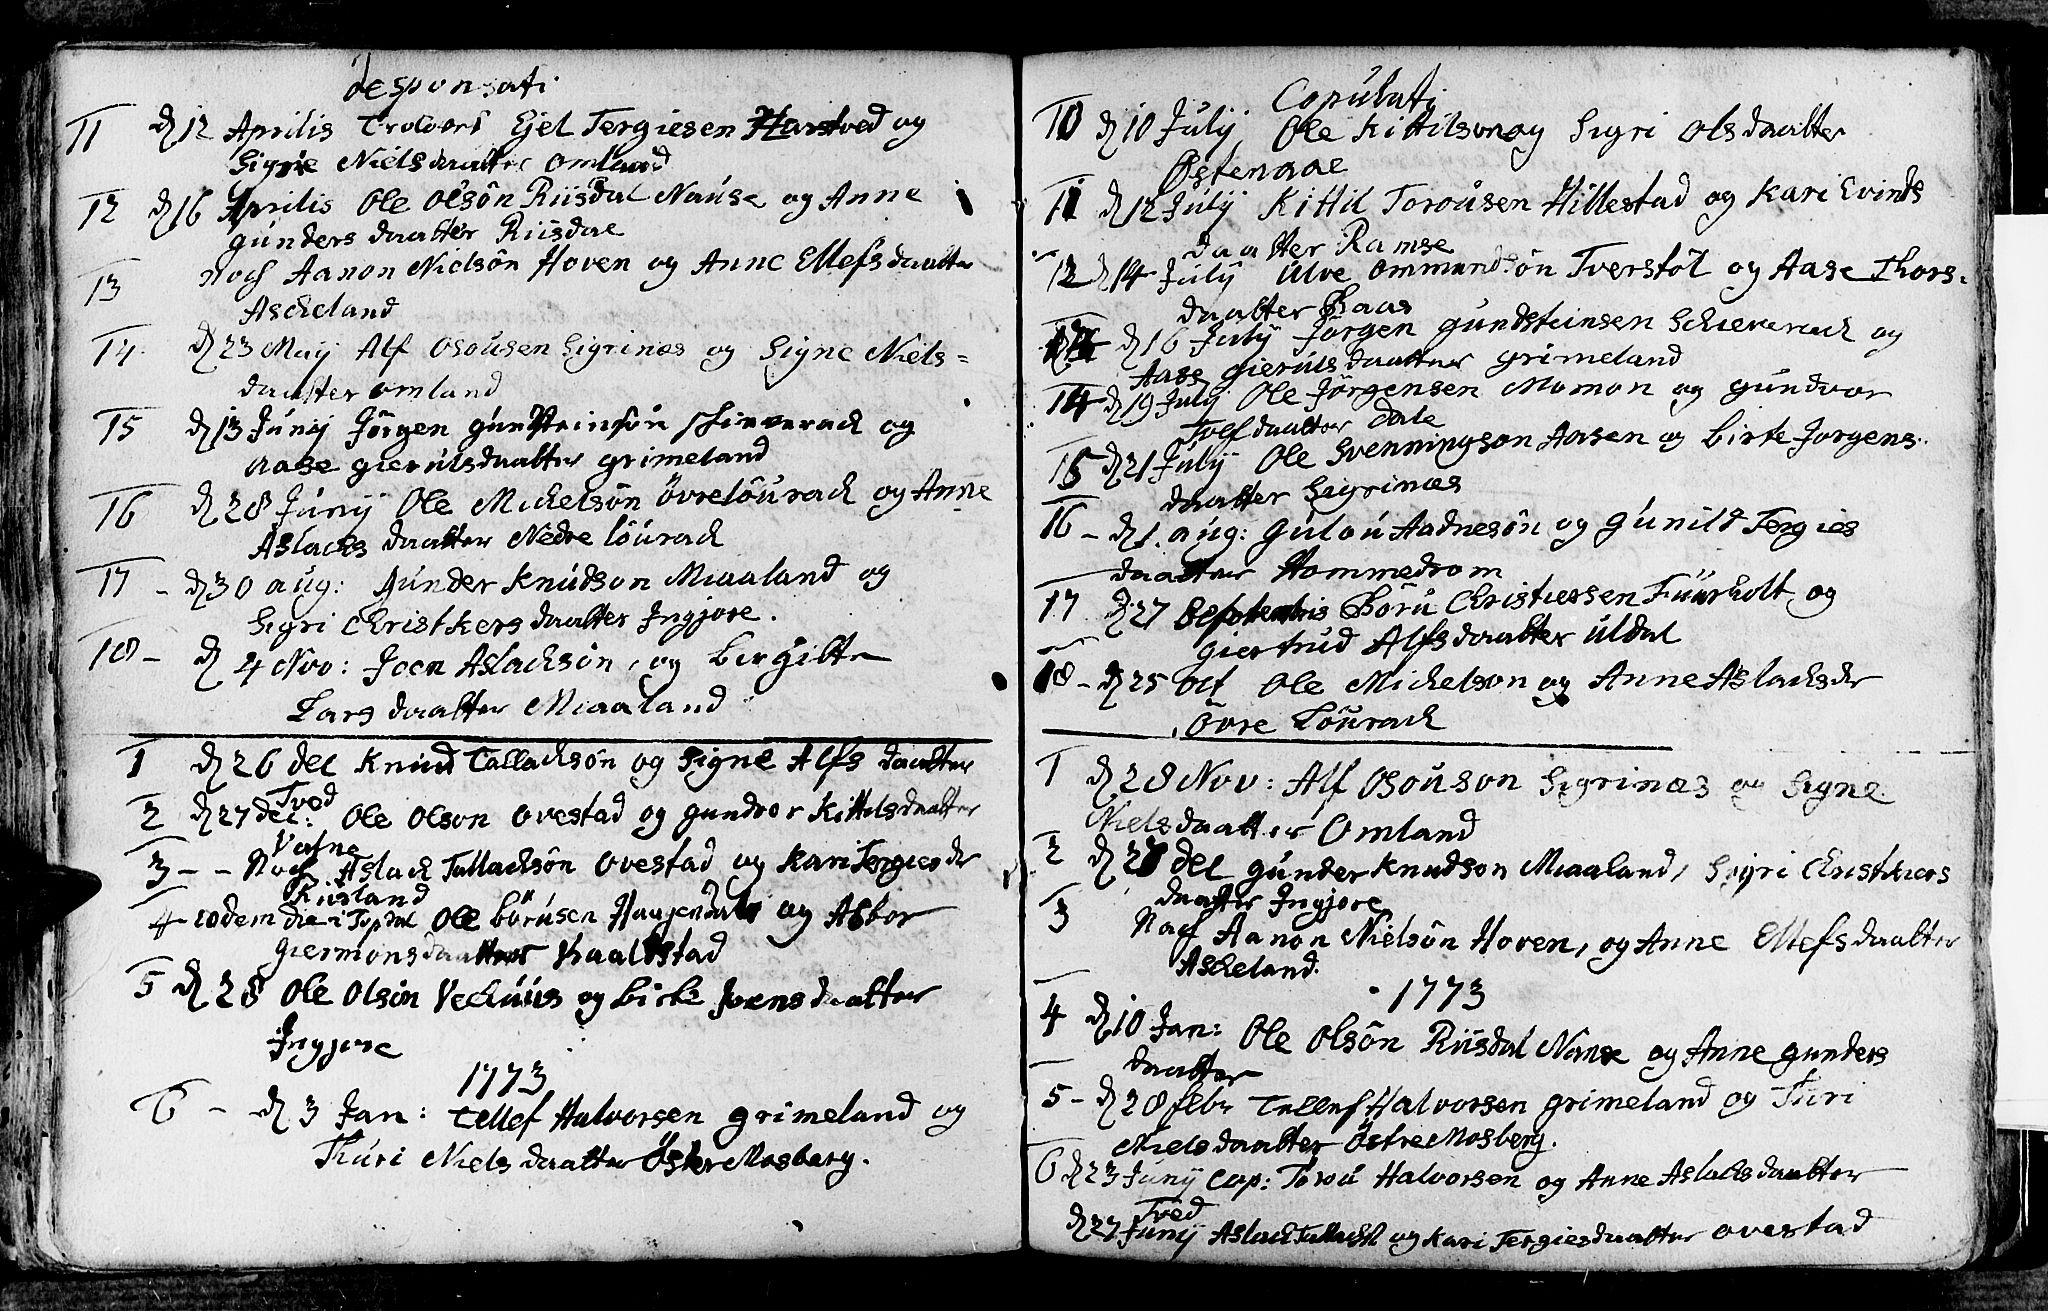 desponsati
11 d 12 Aprilis Trolovet Ejel Tergiesen Harstved og
Sigrie Nielsdaatter omland
12 d 16 Aprilis Ole Olsön Riisdal Nause og Anne
gunders daatter Riisdae
13 noch Aanon Nielsön Hoven og Anne Ellefsdaatter
Ascheland
14 d 23 Maij Alf Osousen Sigrinæs og Signe Niels=
daatter omland
15 d 13 Junij Jörgen gundsteinsön schieverach og
Aase gierulsdaatter grimeland
16 d 28 Junij Ole Michelsön övrelöurach og Anne
Aslachs daatter Nedre löurach
17 - d 30 aug: Gunder Knudson Miaaland og
Sigri Christhersdaatter Jngjore.
18 - d 4 Nov: Joen Aslachsön, og Birgitte
Lars daatter Miaaland
1 d 26 dec Knud Tallachsön og Signe Alfs daatter
Tved
2 d 27 dec: Ole Olson Ovestad og gundvor Kittilsdaatter
Vatne
3 - - Noch Aslach Tallachsön Ovestad og Kari Tergiesdr
Riisland
4 eodem die i Topdal Ole börusen og Asbor
giermonsdaatter Kaalstad
5 d 28 Ole Olsön Vechuus og birte Joensdaatter
Jngjore
1773
6 - d 3 Jan: Tellef Halvorsen grimeland og
Thuri Niels daatter Öster Mosberg.
Copulati
10 d 10 Julij Ole Kittilson og Sigri Olsdaatter
Østenaae
11 d 12 Julij Kittil Torousen Hillestad og Kari Evinds
daatter Ramse
12 d 14 Julij Ulve Ommundsön Tverstöl og Aase Thors=
daatter Baas
d 16 Julij Jörgen gundsteinsen Schieverach og
Aase gierulsdaatter grimeland
14 d 19 Julij Ole Jörgensen Momon og gundvor
daatter Dale
15 d 21 Julij Ole Svenningson Aasen og birte Jorgens
daatter Sigrinæs
16 - d 1. aug: Gulou Aadnesön og Gunild Tergies
daatter Hommedrom
17 d 27 Septembris Böru Christiersen Tüürholt og
giertrud Alfsdaatter Uldal
18 - d 25 Oct Ole Michelson og Anne Aslachsdr
Övre Löurach
1 d 28 Nov: Alf Osouson Sigrinæs og Signe
Nielsdaatter Omland
2 d 27 dec gunder Knudson Miaaland, Sigri Christhiers
daatter Jngjore
3 Noch Aanon Nielsön Hoven, og Anne Ellefsdaatter
Ascheland.
1773
4 d 10 Jan: Ole Olsön Riisdal Nause og Anne gunders
daatter
5 - d 28 febr Tellef Halvorsen grimeland og Turi
Nielsdaatter Östre Mosberg.
6 d 23 Junij Cop: Torou Halvorsen og Anne Aslachsdaatter
Tved
d 27 Junij Aslach Tallachs. og Kari Tergiesdaatter Ovestad